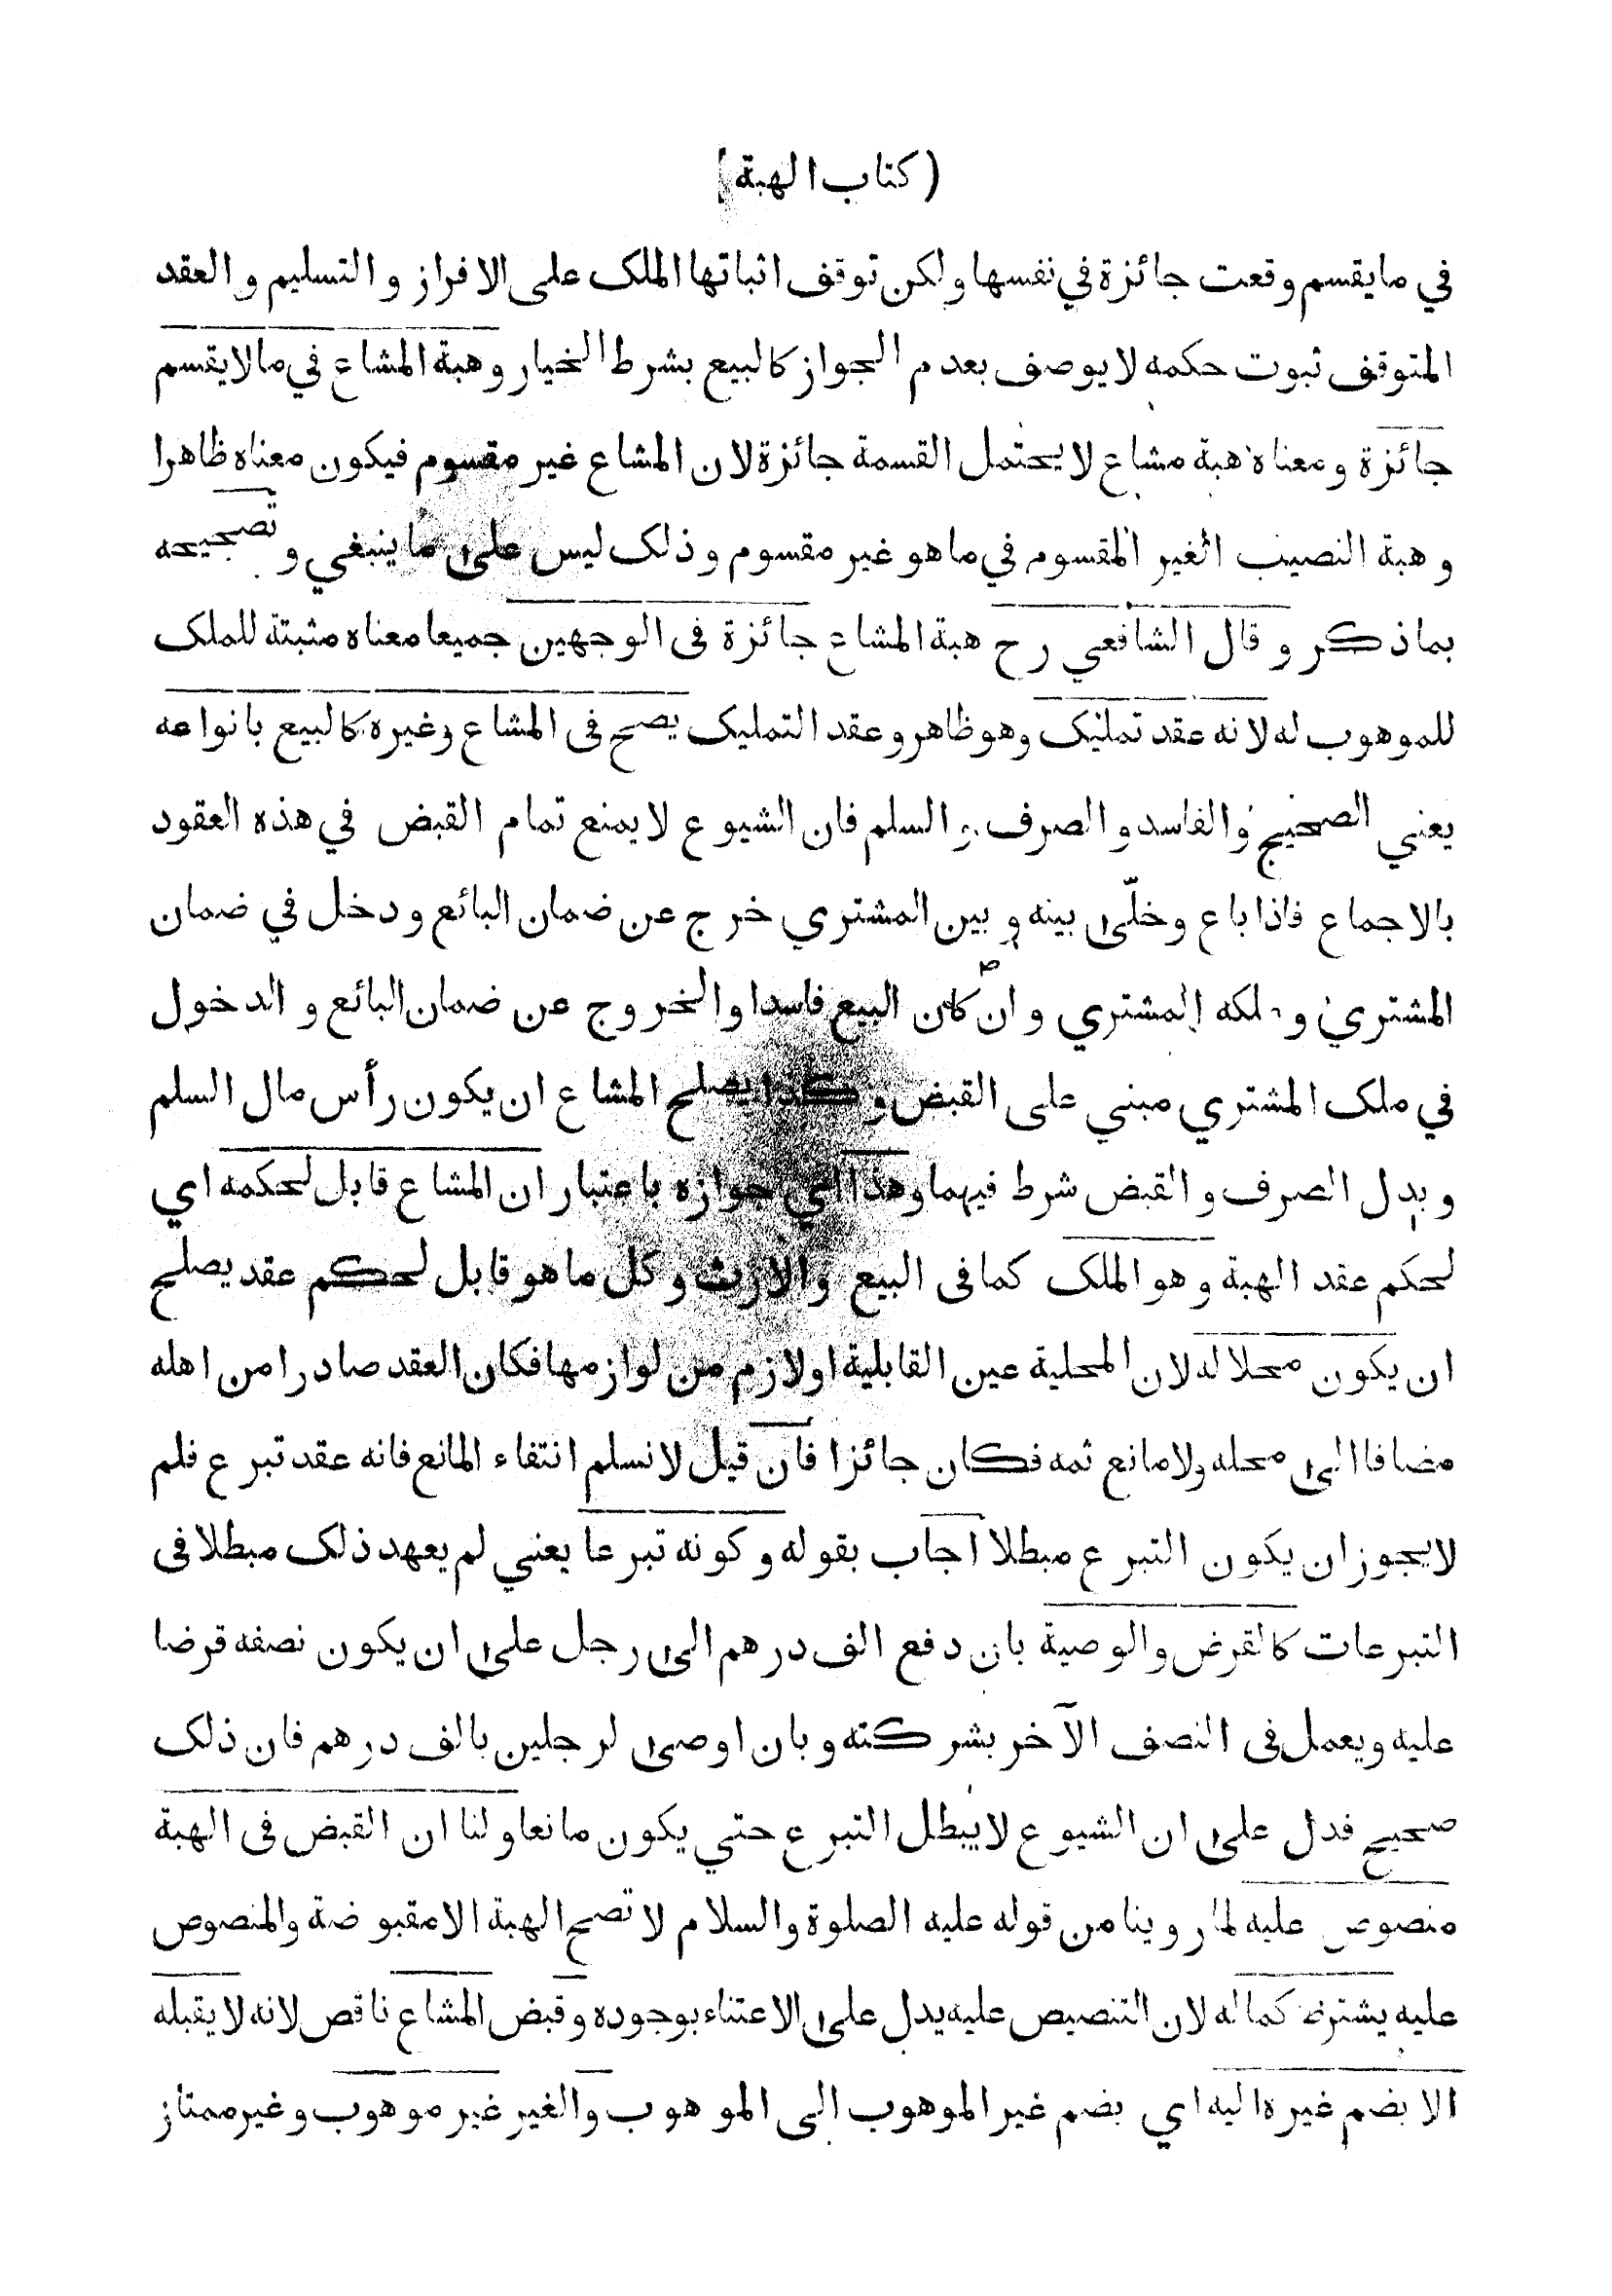 (كتاب الهبة)
في ما يقسم وقعت جائزة في نفسها ولكن توقف اثباتها الملك على الافراز و التسليم و العقد
المتوقف ثبوت حكمه لا يوصف بعدم الجواز كالبيع بشرط الخيار وهبة المشاع في ما لا يقسم
جائزة ومعناه هبة مشاع لا يحتمل القسمة جائزة لان المشاع غير مقسوم فيكون معناه ظاهرا
و هبة النصيب الغير المقسوم في ما هو غير مقسوم و ذلك ليس على ما ينبغي و تصحيحه
بما ذكر و قال الشافعي رح هبة المشاع جائزة فى الوجهين جميعا معناه مثبتة للملك
للموهوب له لانه عقد تمليك وهو ظاهر وعقد التمليك يصح فى المشاع وغيره كالبيع بانواعه
يعني الصحيح والفاسد و الصرف و السلم فان الشيوع لا يمنع تمام القبض في هذه العقود
بالاجماع فاذا باع وخلّى بينه وبين المشتري خرج عن ضمان البائع و دخل في ضمان
المشتري و ملكه المشتري و ان كان البيع فاسدا والخروج عن ضمان البائع و الدخول
في ملك المشتري مبني على القبض وكذا يصلح المشاع ان يكون رأس مال السلم
و بدل الصرف و القبض شرط فيهما وهذا اي جوازه باعتبار ان المشاع قابل لحكمه اي
لحكم عقد الهبة و هو الملك كما فى البيع والارث و كل ما هو قابل لحكم عقد يصلح
ان يكون محلا له لان المحلية عين القابلية او لازم من لوازمها فكان العقد صادرا من اهله
مضافا الى محله ولا مانع ثمه فكان جائزا فان قيل لا نسلم انتفاء المانع فانه عقد تبرع فلم
لا يجوز ان يكون التبرع مبطلا اجاب بقوله و كونه تبرعا يعني لم يعهد ذلك مبطلا فى
التبرعات كالقرض والوصية بان دفع الف درهم الى رجل على ان يكون نصفه قرضا
عليه ويعمل فى النصف الآخر بشركته و بان اوصى لرجلين بالف درهم فان ذلك
صحيح فدل على ان الشيوع لا يبطل التبرع حتي يكون مانعا ولنا ان القبض فى الهبة
منصوص عليه لما روينا من قوله عليه الصلوة والسلام لا تصح الهبة الا مقبوضة والمنصوص
عليه يشترط كماله لان التنصيص عليه يدل على الاعتناء بوجوده وقبض المشاع ناقص لانه لا يقبله
الا بضم غيره اليه اي بضم غير الموهوب الى الموهوب والغير غير موهوب وغير ممتاز